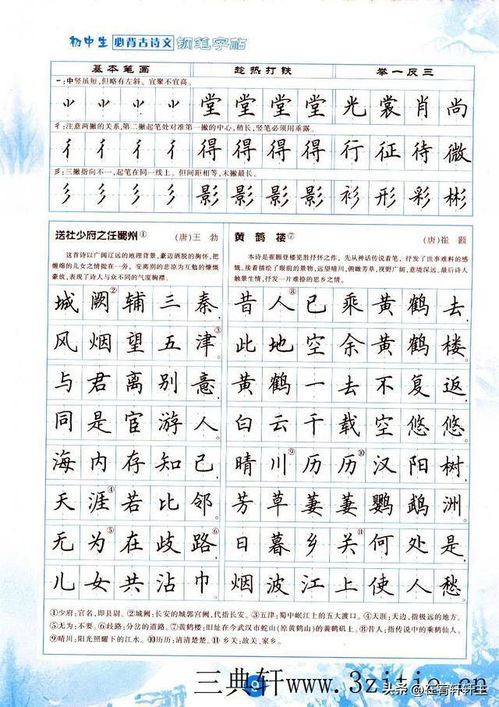 初中生 必背古诗文 钢笔字帖
基本笔画 趁热打铁 举一反三
中竖虽短,但略有左斜。宜聚不宜高。
堂 堂 堂 堂 光 裳 肖 尚
彳:注意两撇的关系,第二撇起笔处对准第一撇的中心,稍长,竖笔必须用垂露。
彳 彳 彳 彳 得 得 得 得 行 征 待 微
彡:三撇指向不一,起笔在同一线上。但间距相等,末撇最长。
彡 彡 彡 彡 影 影 影 影 衫 形 彩 彬
送杜少府之任蜀州①
(唐)王 勃
这首诗以广阔辽远的地理背景,豪迈洒脱的胸怀,把
缠绵的儿女之情抛在一旁。变离别的悲凉为乙勉的慷慨
豪放,表现了诗人与众不同的气度胸襟。
城阙②辅三秦
风烟望五津③
与君离别意
同是宦游人
海内存知己
天涯④若比邻
无为⑤在歧路⑥
儿女共沾巾
黄鹤楼⑦
(唐)崔 颢
本诗是崔颢登楼览胜抒怀之作,先从神话传说着笔,抒发了世事难料的感
慨,接着描绘了眼前的景物,远望晴川,俯瞰芳草,视野广阔,意境深远,最后诗人
触景生情,抒发一片难捺的思乡之情。
昔人⑧已乘黄鹤去
此地空余黄鹤楼
黄鹤一去不复返
白云千载空悠悠
晴川⑨历历⑩汉阳树
芳草萋萋鹦鹉洲
日暮乡关⑪何处是
烟波江上使人愁
①少府:官名,即县尉。②城阙:长安的城郭宫阙,代指长安。③五津:蜀中岷江上的五大渡口。④天涯:天边,指极远的地方。
⑤无为:不要。⑥歧路:分岔的道路。⑦黄鹤楼:旧址在今武汉市蛇山(原黄鹤山)的黄鹤矶上。⑧昔人:指传说中的乘鹤仙人。
⑨晴川:阳光照耀下的江水。⑩历历:清清楚楚。⑪乡关:故关,家乡。
三典轩www.3zitie.cn